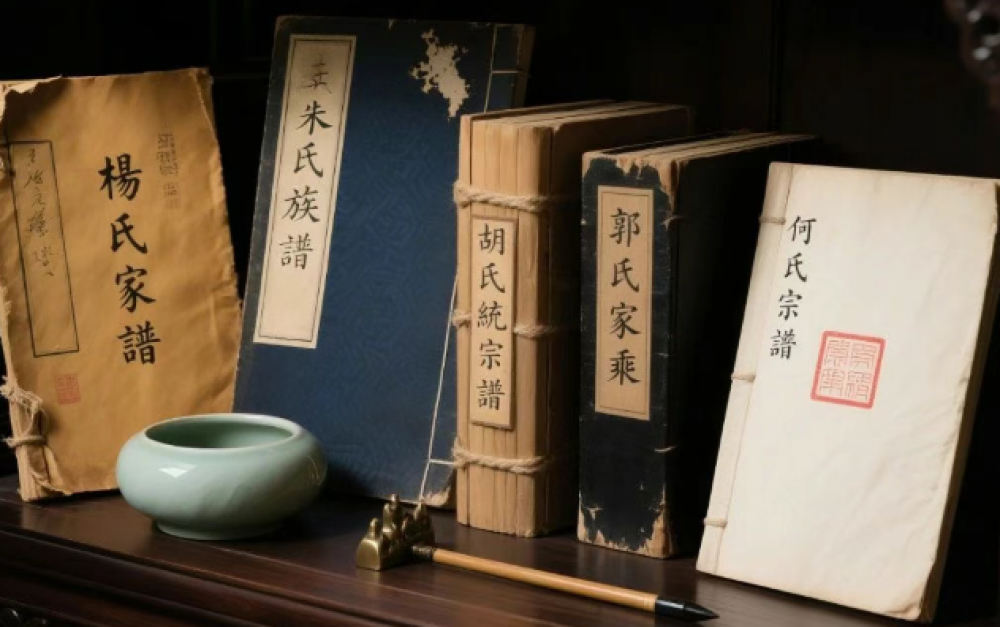 楊氏家譜
朱氏族譜
胡氏統宗譜
郭氏家乘
何氏宗譜